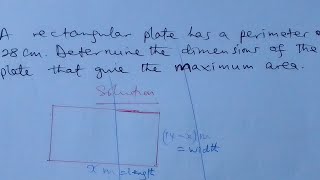 A rectangular plate has a perimeter o
28 cm. Determine the dimensions of the
plate that give the maximum area.
Solution
(14 - x) m
= width
x m = length